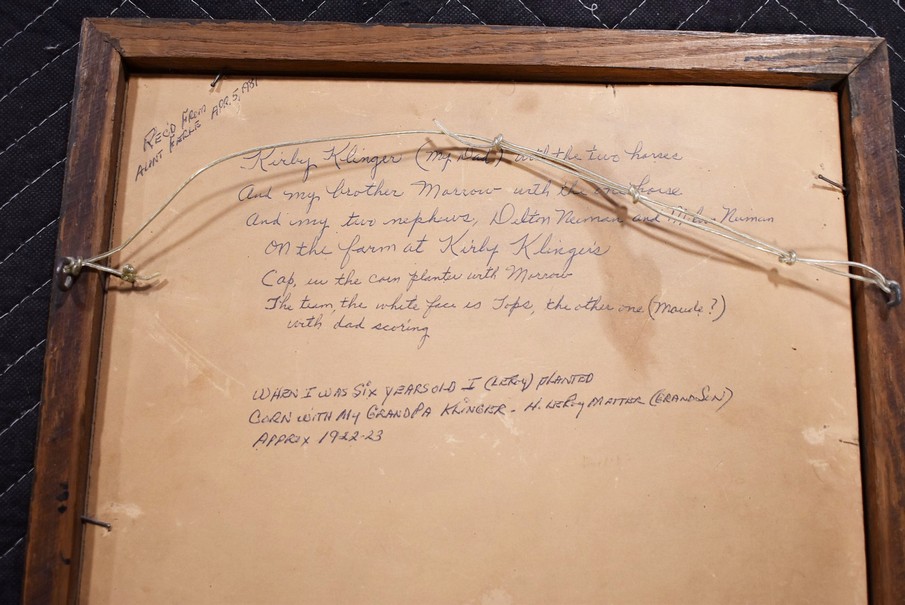 REC'D FROM
AUNT KARLE APR. 5, 1981
Kirby Klinger (my Dad) with the two horses
And my brother Morrow with the one horse
And my two nephews, Delton Neiman and Neiman
On the farm at Kirby Klingers
Cap, in the corn planter with Morrow
The team, the white face is Tops, the other one (Maude?)
with dad scoring
WHEN I WAS SIX YEARS OLD I (LEROY) PLANTED
CORN WITH MY GRANDPA KLINGER - H. LEROY MATTER (GRAND-SON)
APPRIX 1922-23